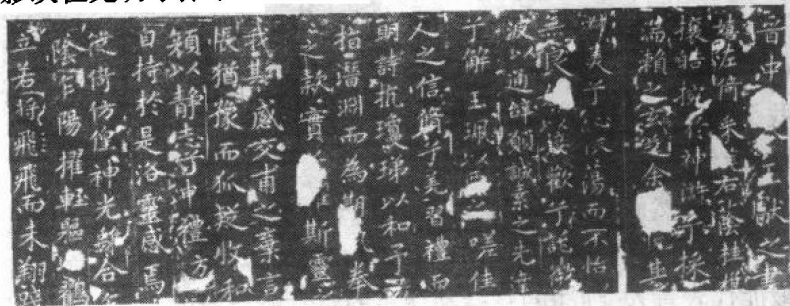 晉中王獻之書
嬉左倚采旄右蔭桂旗
攘皓捥於神滸兮採
湍瀨之玄芝余其
淑美兮心振蕩而不怡
無良以接歡兮託微
波以通辭願誠素之先達
兮解玉珮以要之嗟佳
人之信脩兮羌習禮而
明詩抗瓊珶以和予
指潛淵而為期拳
之款實懼斯靈之
我欺感交甫之棄言
悵猶豫而狐疑收和
顏以靜志兮申禮防
自持於是洛靈感焉
徙倚仿偟神光離合乍
陰乍陽擢輕軀以鶴
立若將飛飛而未翔踐